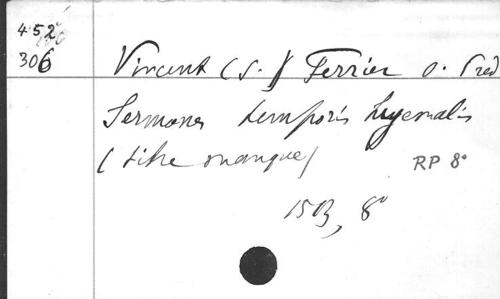 452
306
Vincent (S.) Ferrier o. Pred
Sermones temporis hyemalis
(titre manque)
RP 8°
1503, 8°